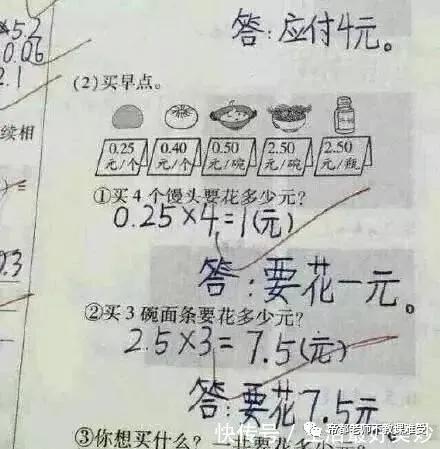 ×5.2
0.06
2.1
答:应付4元。
(2)买早点。
续相
0.25 元/个
0.40 元/个
0.50 元/碗
2.50 元/碗
2.50 元/瓶
①买4个馒头要花多少元?
0.25×4=1(元)
答:要花一元。
0.3
②买3碗面条要花多少元?
2.5×3=7.5(元)
答:要花7.5元
③你想买什么?一共要花多少元?
快传号/生活最好美妙